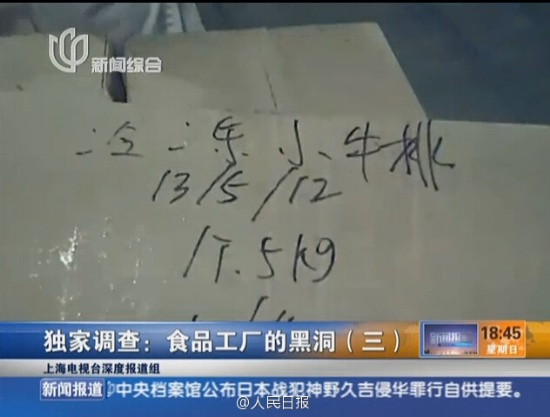 新闻综合
冷冻小牛排
13/5/12
17.5kg
独家调查：食品工厂的黑洞（三）
18:45
星期日
上海电视台深度报道组
新闻报道
中央档案馆公布日本战犯神野久吉侵华罪行自供提要。
@人民日报